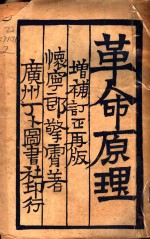 革命原理
增補訂正再版
懷寧郎擎霄著
廣州丁卜圖書社印行